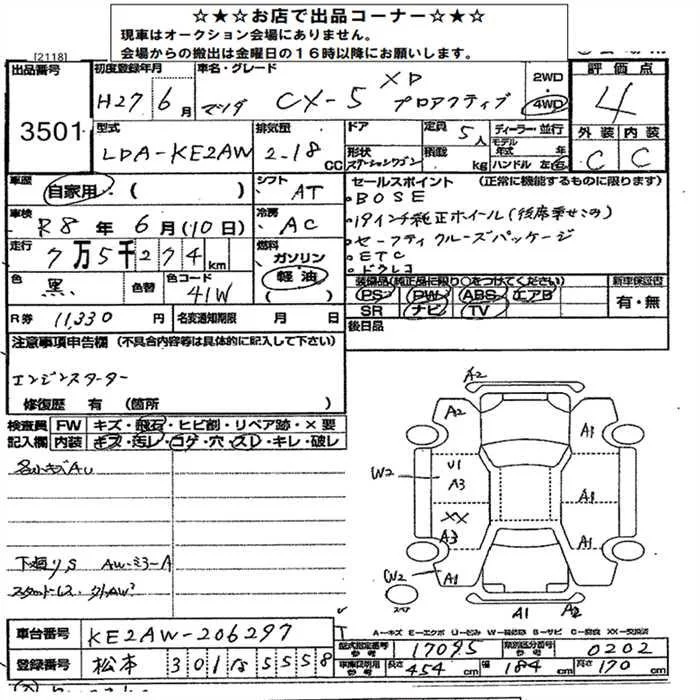 ☆★☆お店で出品コーナー☆★☆
現車はオークション会場にありません。
会場からの搬出は金曜日の16時以降にお願いします。
[2118]
出品番号 3501
初度登録年月 H27年6月
車名・グレード マツダ CX-5 XD プロアクティブ
2WD
4WD
評価点 4
外装 内装
C C
型式 LDA-KE2AW
排気量 2.18 CC
ドア
形状 ステーションワゴン
定員 5人
積載 kg
ディーラー・並行
モデル年式 年
ハンドル 左・右
車歴 自家用・( )
シフト AT
車検 R8年6月(10日)
冷房 AC
走行 7万5千274km
燃料 ガソリン
軽油
( )
色 黒
色替
色コード 41W
R券 11,330円
名変通知期限 月 日
セールスポイント (正常に機能するものに限り。)
・BOSE
・19インチ純正ホイール(後席乗せこの)
・セーフティクルーズパッケージ
・ETC
・ドラレコ
装備品(純正品に限り○をつけてください)
PS・PW・ABS・エアB
SR ナビ・TV
新車保証書
有・無
後日品
注意事項申告欄 (不具合内容等は具体的に記入して下さい)
エンジンスターター
修復歴 有 (箇所 )
検査員 FW キズ・飛石・ヒビ割・リペア跡・×要
記入欄 内装 キズ・汚レ・コゲ・穴・スレ・キレ・破レ
AW-ミラーA
A2
A2 A1
U1
A3
W2
A1
XX
A3
W2 A1 A1
スペア
A1 A2
A-キズ E-エクボ U-凹み W-補修跡 S-サビ C-腐食 XX-交換済
車台番号 KE2AW-206297
登録番号 松本 301 な 5558
型式指定番号 参考 17095
類別区分番号 参考 0202
車庫証明用 参考 長さ 454 cm 幅 184 cm 高さ 170 cm